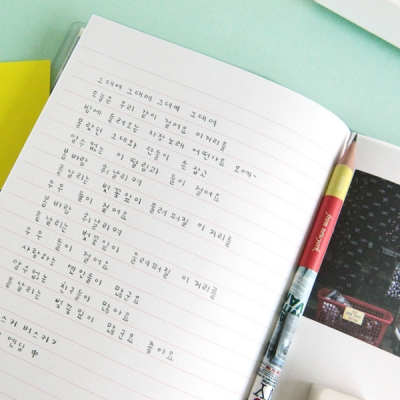 그대여 그대여 그대여 그대여
오늘은 우리 같이 걸어요 이거리를
밤에 들려오는 자장노래 어떤가요 오예~
몰랐던 그대와 단둘이 손잡고
알수없는 이 떨림과 둘이 걸어요
봄바람 휘날리며
흩날리는 벚꽃잎이 울려퍼질 이거리를
우우 둘이 걸어요
봄바람 휘날리며
흩날리는 벚꽃잎이 울려퍼질 이거리를
우우 둘이 걸어요
사랑하는 연인들이 많군요
알수없는 친구들이 많아요
흩날리는 벚꽃잎이 많군요 좋아요
스커 버스커>
엔딩 中